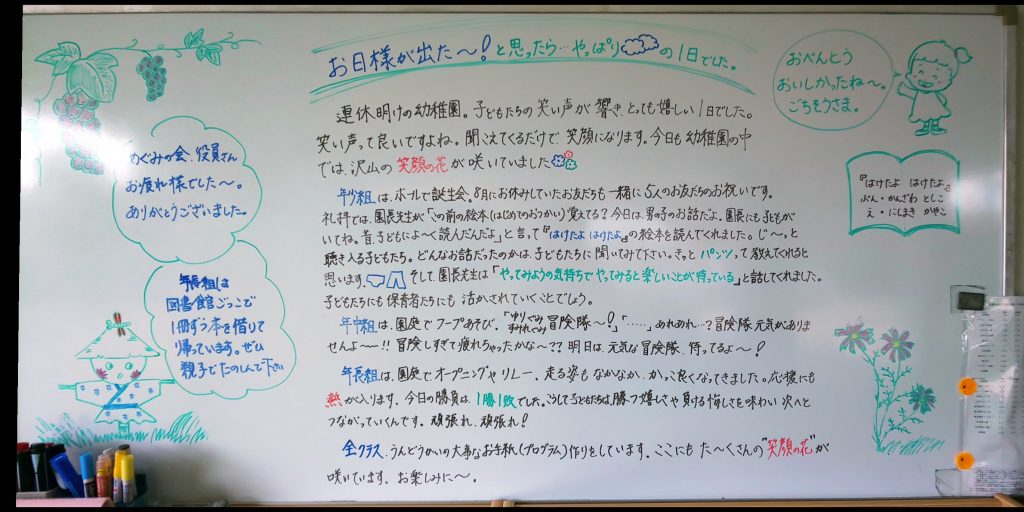 お日様が出た〜!と思ったら…やっぱり の1日でした。
連休明けの幼稚園。子どもたちの笑い声が響き、とっても嬉しい1日でした。
笑い声って良いですよね。聞こえてくるだけで、笑顔になります。今日も幼稚園の中
では、沢山の笑顔の花が咲いていました
年少組は、ホールで誕生会。8月にお休みしていたお友だちも一緒に5人のお友だちのお祝いです。
礼拝では、園長先生が「この前の絵本(はじめてのおつかい)覚えてる?今日は、男の子のお話だよ。園長にも子どもが
いてね。昔、子どもによ〜く読んだんだよ」と言って『はけたよ はけたよ』の絵本を読んでくれました。じ〜っと
聴き入る子どもたち。どんなお話だったのかは、子どもたちに聞いてみて下さい。きっと パンツって教えてくれると
思います。 そして、園長先生は「やってみようの気持ちでやってみると楽しいことが待っている」と話してくれました。
子どもたちにも保育者たちにも 活かされていくことでしょう。
年中組は、園庭でフープあそび。「ゆりぐみ すみれぐみ 冒険隊〜!」「……」あれあれ…?冒険隊元気がありま
せんよ〜ー!!冒険しすぎて疲れちゃったかな〜??明日は、元気な冒険隊、待ってるよ〜!
年長組は、園庭で、オープニングやリレー、走る姿もなかなか、かっこ良くなってきました。応援にも
熱が入ります。今日の勝負は、1勝1敗でした。こうして子どもたちは、勝つ嬉しさや負ける悔しさを味わい次へと
つながっていくんです。頑張れ、頑張れ!
全クラス、うんどうかいの大事なお手紙(プログラム)作りをしています。ここにもた〜くさんの"笑顔の花"が
咲いています。お楽しみに〜。
めぐみの会、役員さん
お疲れ様でした〜。
ありがとうございました。
年長組は
図書館ごっこで
1冊ずつ本を借りて
帰っています。ぜひ
親子でたのしんで下さい
おべんとう
おいしかったね〜。
ごちそうさま。
『はけたよ はけたよ』
ぶん・かんざわ としこ
え・にしまき かやこ